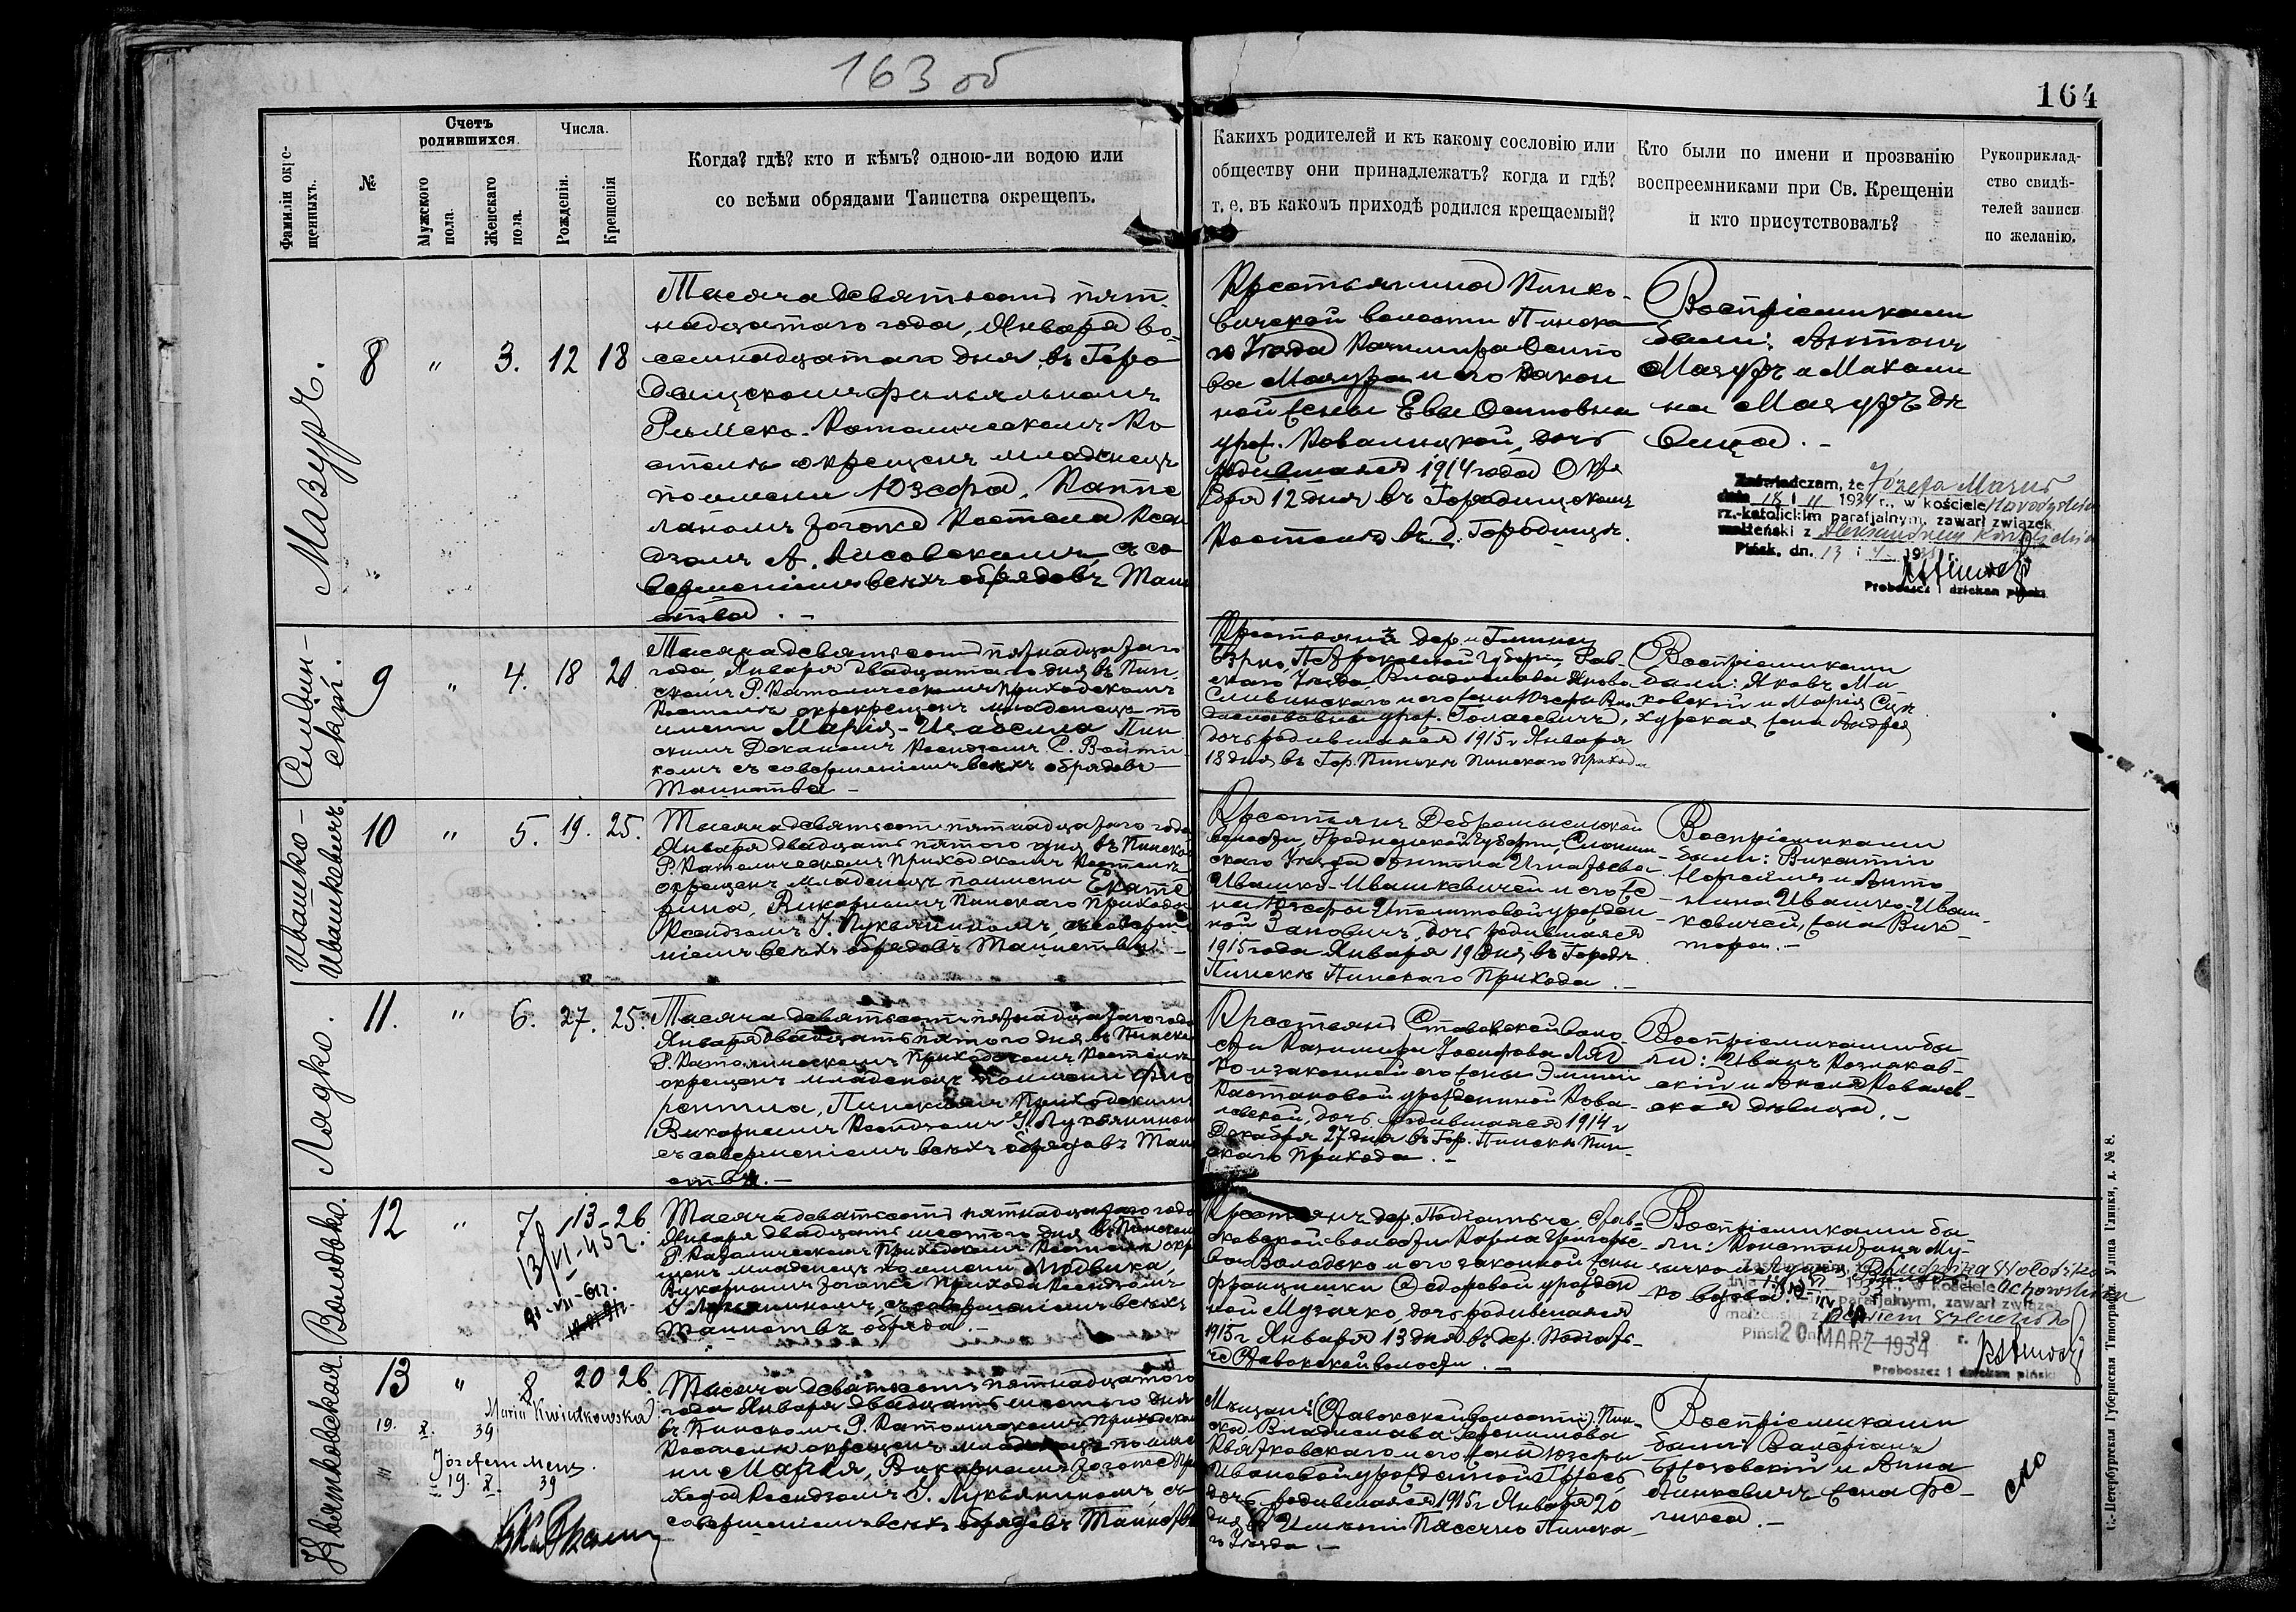 163 об
164
Фамиліи окре-
щенныхъ.
№
Счетъ
родившихся.
Мужского
пола.
Женскаго
пола.
Числа.
Рожденія.
Крещенія
Когда? гдѣ? кто и кѣмъ? одною-ли водою или
со всѣми обрядами Таинства окрещенъ.
Какихъ родителей и къ какому сословію или
обществу они принадлежатъ? когда и гдѣ?
т. е. въ какомъ приходѣ родился крещаемый?
Кто были по имени и прозванію
воспреемниками при Св. Крещеніи
и кто присутствовалъ?
Рукоприклад-
ство свидѣ-
телей записи
по желанію.
Мазуръ.
8 " 3. 12 18
Тысяча девятьсотъ пят-
надцатаго года, Января во-
семнадцатаго дня, въ Горо-
дищскомъ фильяльномъ
Римско-Католическомъ Ко
стелѣ окрещенъ младенецъ
по имени Юзефа, Каппе
ланомъ тогоже Костела Ксен
дзомъ А. Лисовскимъ, съ со
вершеніемъ всѣхъ обрядовъ Таин
ства. –
Крестьянина Пинко-
вичской волости Пинска
го Уѣзда Казимира Осипо
ва Мазура и его закон
ной жены Евы Осиповны
урож. Ковальцкой, дочь
родившаяся 1914 года
12 дня въ Городищскомъ
Костелѣ въ д. Городище.
Воспріемниками
были: Антонъ
Мазуръ и Махали
на Мазуръ дѣ
вица. –
Zaświadczam, że Józefa Mazur
dnia 18 i II 1934 r., w kościele
rz.-katolickim parafjalnym, zawarł związek
małżeński z Aleksandrem
Pińsk, dn. 13 i 4 193 r.
Proboszcz i dziekan piński
Сливин-
скій.
9 " 4. 18 20
Тысяча девятьсотъ пятнадцатаго
года, Января двадцатаго дня въ Пин-
скомъ Р. Католическомъ Приходскомъ
Костелѣ окрещенъ младенецъ по
имени Марія-Изабелла Пин
скимъ Деканомъ Ксендзомъ С. Войти
комъ съ совершеніемъ всѣхъ обрядовъ
Таинства –
Крестьянъ дер. и Гмины
Губерніи, Рав-
скаго Уѣзда, Владислава
Сливинскаго и его жены Юзефы
урож. Голасевичъ,
дочь родившаяся 1915 г Января
18 дня въ Гор. Пинскѣ Пинскаго Прихода
Воспріемниками
были: Яковъ Ми
ковскій и Марія
жена Андрея
Ивашко-
Ивашкевичъ
10 " 5. 19. 25.
Тысяча девятьсотъ пятнадцатаго года
Января двадцать пятаго дня въ Пинскомъ
Р. Католическомъ Приходскомъ Костелѣ
окрещенъ младенецъ по имени Екате
рина, Викарнымъ Пинскаго Прихода
Ксендзомъ І. Лукьяниномъ, съ соверше
ніемъ всѣхъ обрядовъ Таинства –
Крестьянъ Добромысльской
волости, Гродненской Губерніи, Слоним-
скаго Уѣзда Антона Игнатьева
Ивашко-Ивашкевичей и его же
ны Юзефы Ипполитовой урожден-
ной Занович, дочь родившаяся
1915 года Января 19 дня въ Городѣ
Пинскѣ Пинскаго Прихода. –
Воспріемниками
были: Викентій
и Анто
нина Ивашко-Иваш-
кевичей, жена Вик
тора. –
Лядко.
11. " 6. 27. 25.
Тысяча девятьсотъ пятнадцатаго года
Января двадцать пятаго дня въ Пинско
Р. Католическомъ Приходскомъ Костелѣ
окрещенъ младенецъ по имени Фло
рентина, Пинскимъ Приходскимъ
Викарнымъ Ксендзомъ І. Лукьянином
съ совершеніемъ всѣхъ обрядовъ Таин
ства. –
Крестьянъ Ставокской воло-
сти Казимира Іосифова Ляд
ко и законной его жены Эмиліи
Константиновой урожденной Кова-
левской, дочь родившаяся 1914 г
Декабря 27 дня въ Гор. Пинскѣ Пин-
скаго Прихода. –
Воспріемниками бы
ли: Иванъ
скій и Ковалев-
ская дѣвица. –
Володько.
12 " 7. 13-26.
13/VI-45 г.
Тысяча девятьсотъ пятнадцатаго года
Января двадцать шестого дня въ Пинском
Р. Католическомъ Приходскомъ Костелѣ окре
щенъ младенецъ по имени Людвика,
Викарнымъ тогоже Прихода Ксендзомъ
І. Лукьяниномъ, съ совершеніемъ всѣхъ
Таинствъ обряда. –
Крестьянъ дер. Став-
окской волости Карла Григорье-
ва Володько и его законной жены
Францишки Федоровой урожден
ной Музычко, дочь родившаяся
1915 г Января 13 дня въ дер.
Ставокской волости. –
Воспріемниками бы-
ли: Константинъ Му-
зычко и
ко вдова. –
Ludwika Wołodźko
w kościele
parafjalnym, zawarł związek
20 MARZ 1934 r.
Proboszcz i dziekan piński
Квятковская.
13 " 8. 20 26.
Maria Kwiatkowska
19. X. 39
Józefem Menz.
19. X. 39
Тысяча девятьсотъ пятнадцатаго
года Января двадцать шестого дня
въ Пинскомъ Р. Католическомъ Приходском
Костелѣ окрещенъ младенецъ по име
ни Марія, Викарнымъ тогоже При
хода Ксендзомъ І. Лукьяниномъ, съ
совершеніемъ всѣхъ обрядовъ Таинства
Мѣщанъ (Ставокской волости) Пин-
ска, Владислава Іеронимова
Квятковскаго и его жены Юзефы
Ивановой урожденной
дочь родившаяся 1915 г Января 20
дня въ Имѣніи Пасечно Пинска-
го Уѣзда. –
Воспріемниками
были Валеріанъ
и Анна
жена Фе-
ликса. –
С.-Петербургская Губернская Типографія. Улица Глинки, д. № 8.